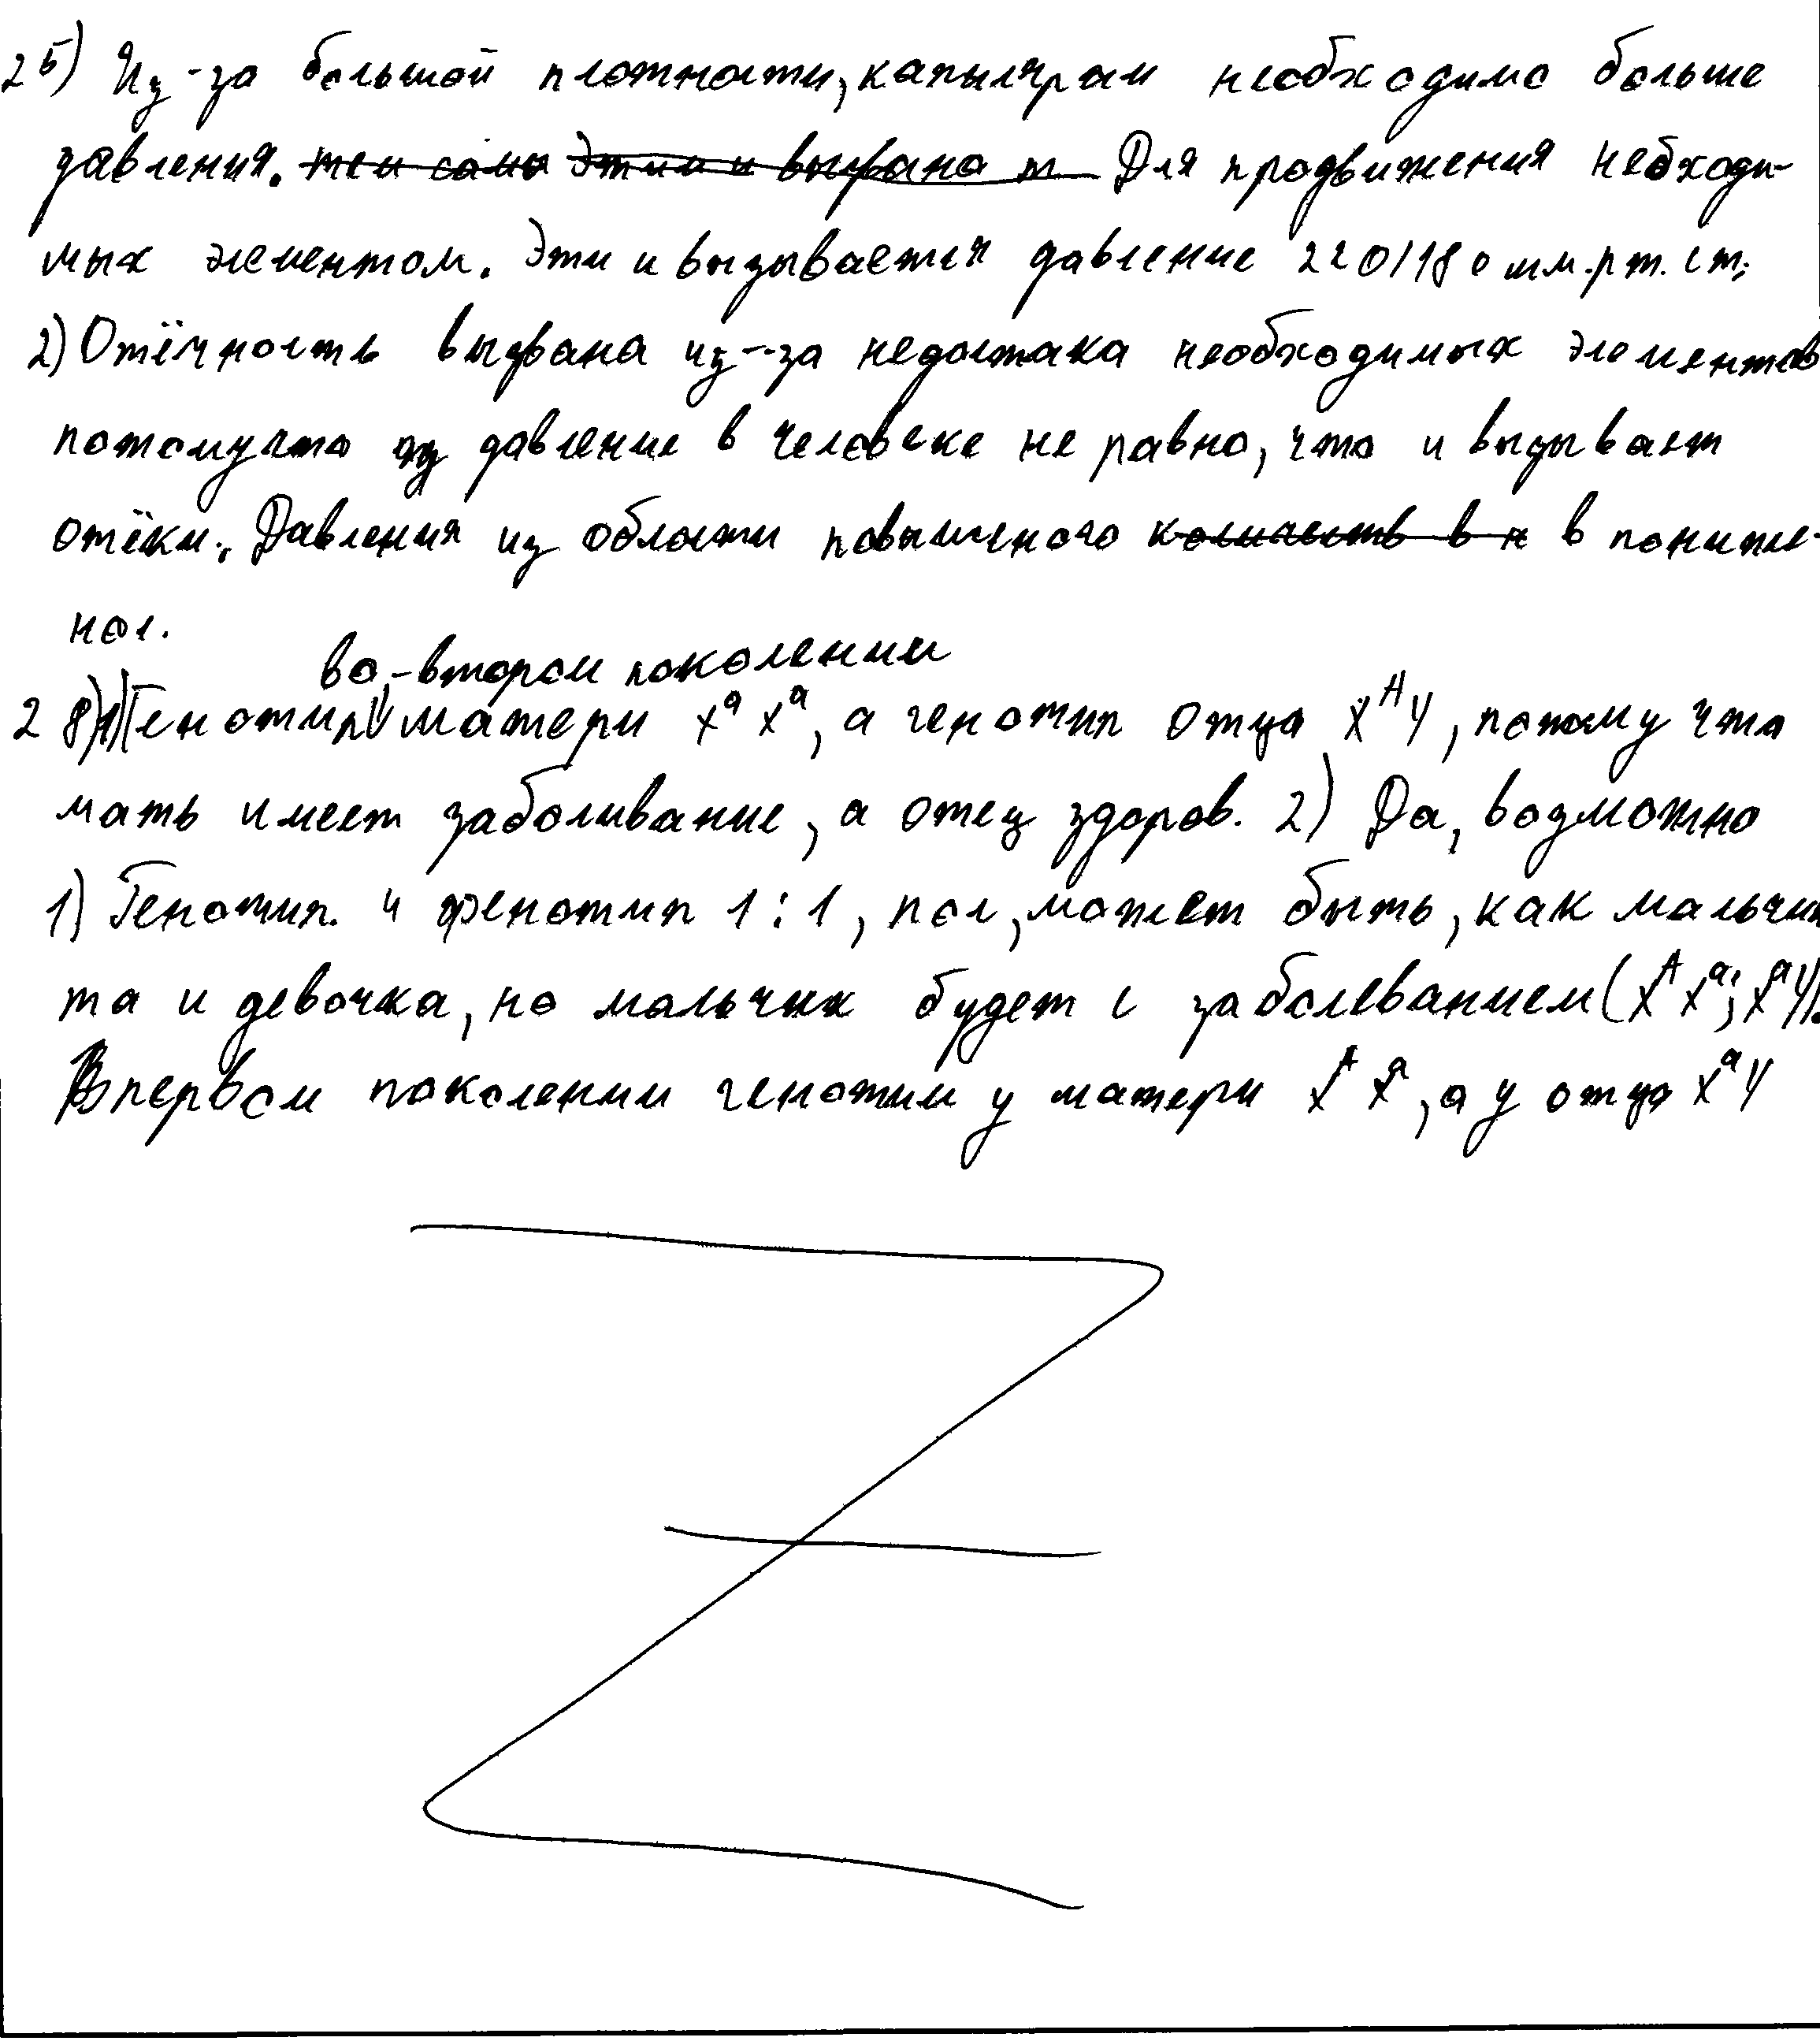 25) Из-за большой плотности, капылярам необходимо больше
давления. тем самы Этим и вызвано т Для продвижения небходи-
мых элементом. Эти и вызывается давление 220/180 мм.рт.ст;
2) Отёчность вызвана из-за недостака необходимых элементов
потомучто из давление в человеке не равно, что и вызывает
отёки. Давления из области повышеного в пониже-
ное.
во-втором поколении
28) 1) Генотип матери XᵃXᵃ, а генотип отца XᴬY, потому что
мать имеет заболивание, а отец здоров. 2) Да, возможно
1) Генотип. и фенотип 1:1, пол, может быть, как мальчик
та и девочка, но мальчик будет с заболеванием (XᴬXᵃ; XᵃY).
В первом поколении генотип у матери XᴬXᵃ, а у отца XᵃY